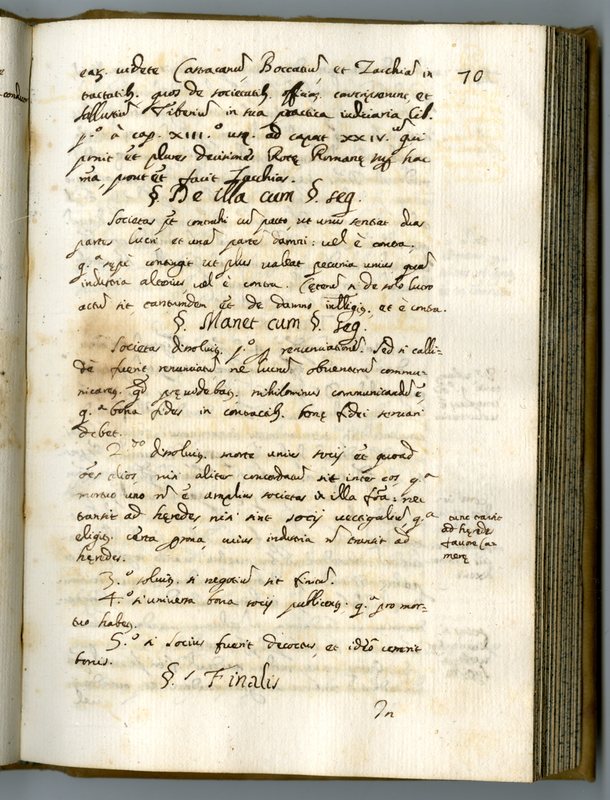 70
eaz. videte Carracanũ, Boccaciũ, et Zacchiã in
tractatib. quos de societatib. officior. conscripserunt et
Sallustiũ Tiberiũ in sua practica iudiciaria lib.
p.º à cap. XIII.º usq. ad caput XXIV.
ponit et plures decisiones Rotę Romanę sup. hac
mã, prout et facit Zacchias.
§. De illa cum §. seq.
Societas pt contrahi cũ pacto, ut unus sentiat duas
partes lucri, et unã parte damni: vel è contra.
q.ª sępè contingit ut plus valeat pecunia unius quã
industria alterius vel è contra. Cęterũ si de solo lucro
actũ sit, tantumdem et de damno intelligit., et è contra.
§. Manet cum §. seq.
Societas dissolvit. p.º p. renunciationẽ. Sed si calli-
dè fuerit renunciatũ ne lucrũ obventurũ commu-
nicaret. qđ pręvidebat. nihilominus communicandũ ę,
q.ª bona fides in contractib. bonę fidei servari
debet.
2.do dissolvit. morte unius socij et quoad
oẽs alios nisi aliter concordatũ sit inter eos, q.ª
mortuo uno nõ è amplius societas in illa fõa: nec
transit ad hęredes nisi sint socij vectigaliũ q.ª
eligit. certa psona, cuius industria nõ transit ad
hęredes.
tunc transit
ad hęredes
favore Ca-
merę
3.º solvit. si negotiũ sit finitũ.
4.º si universa bona socij publicent. q.ª pro mor-
tuo habet.
5.º si socius fuerit decoctus, et ideò cesserit
bonis.
§. Finalis
In